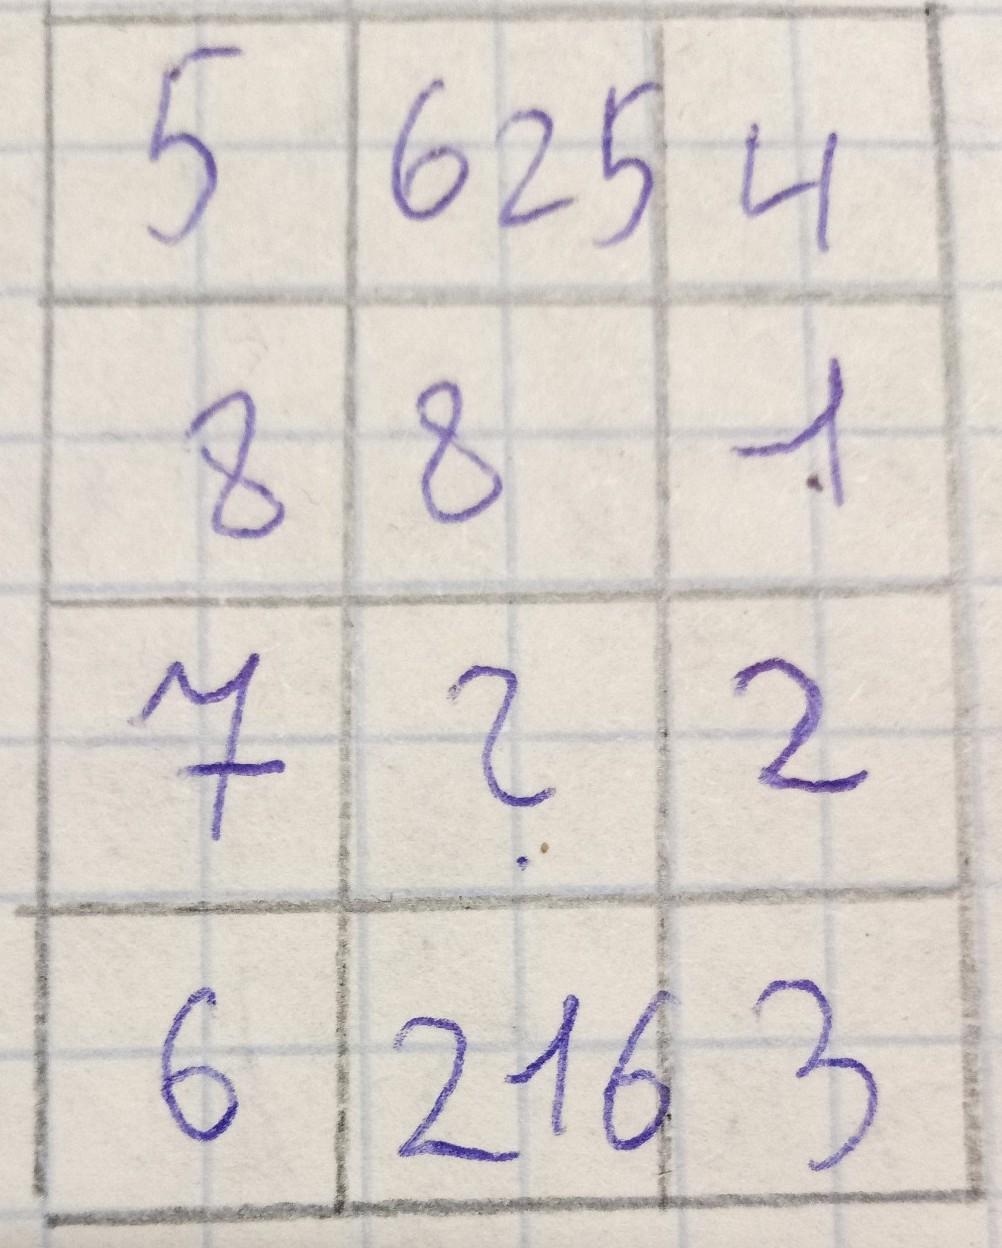 5 625 4
8 8 1
7 ? 2
6 216 3